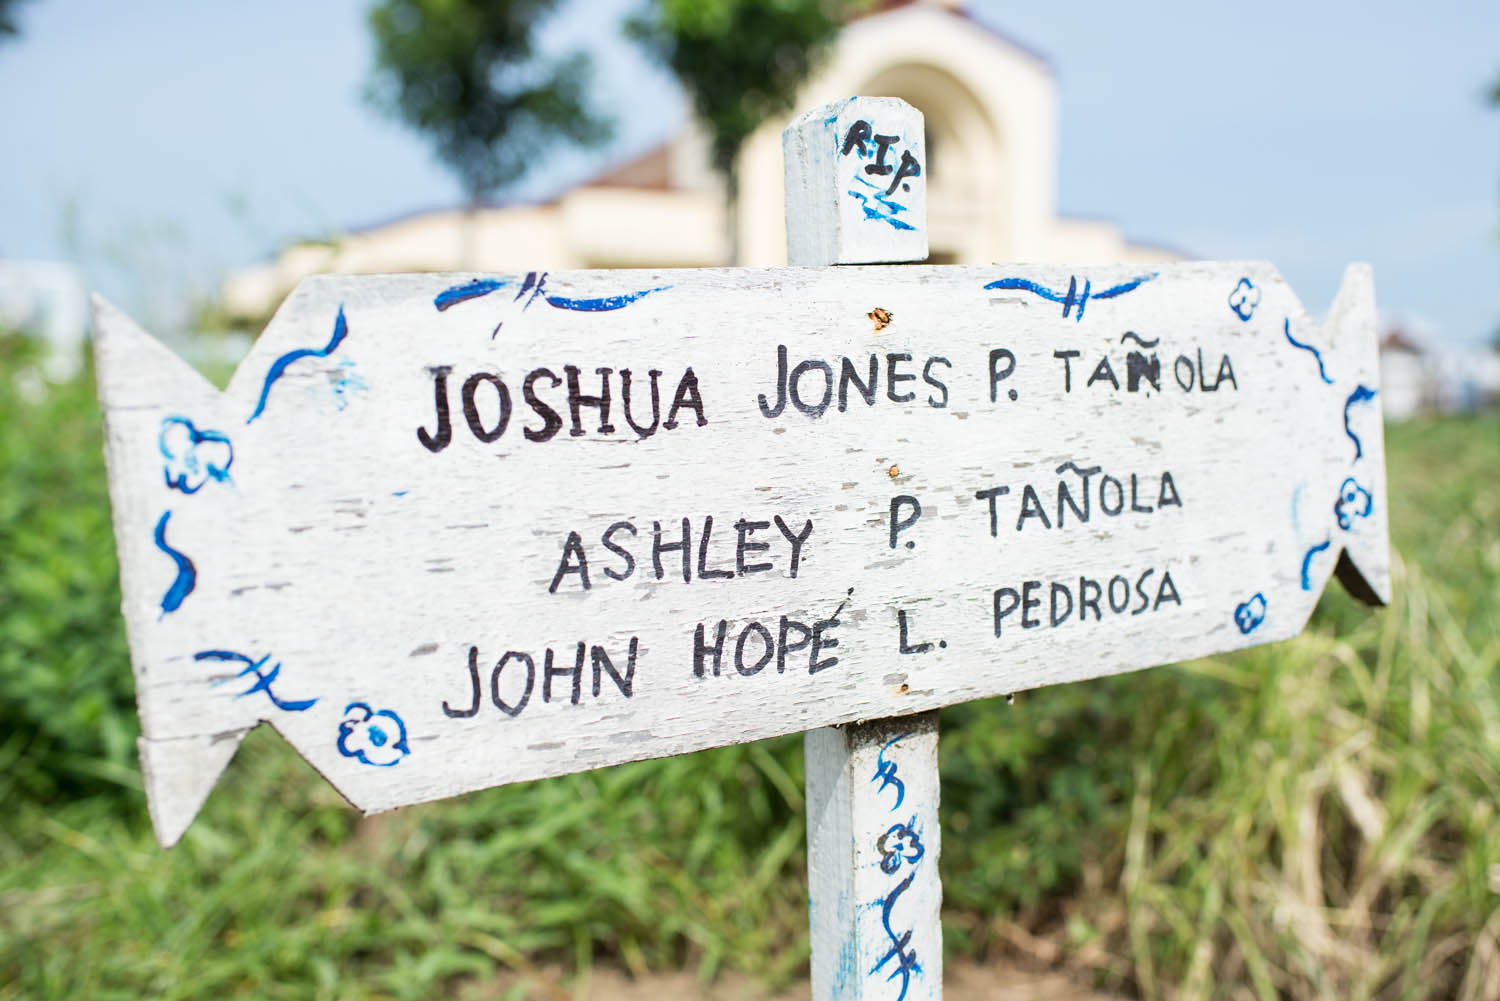 R.I.P.
JOSHUA JONES P. TAÑOLA
ASHLEY P. TAÑOLA
JOHN HOPÉ L. PEDROSA